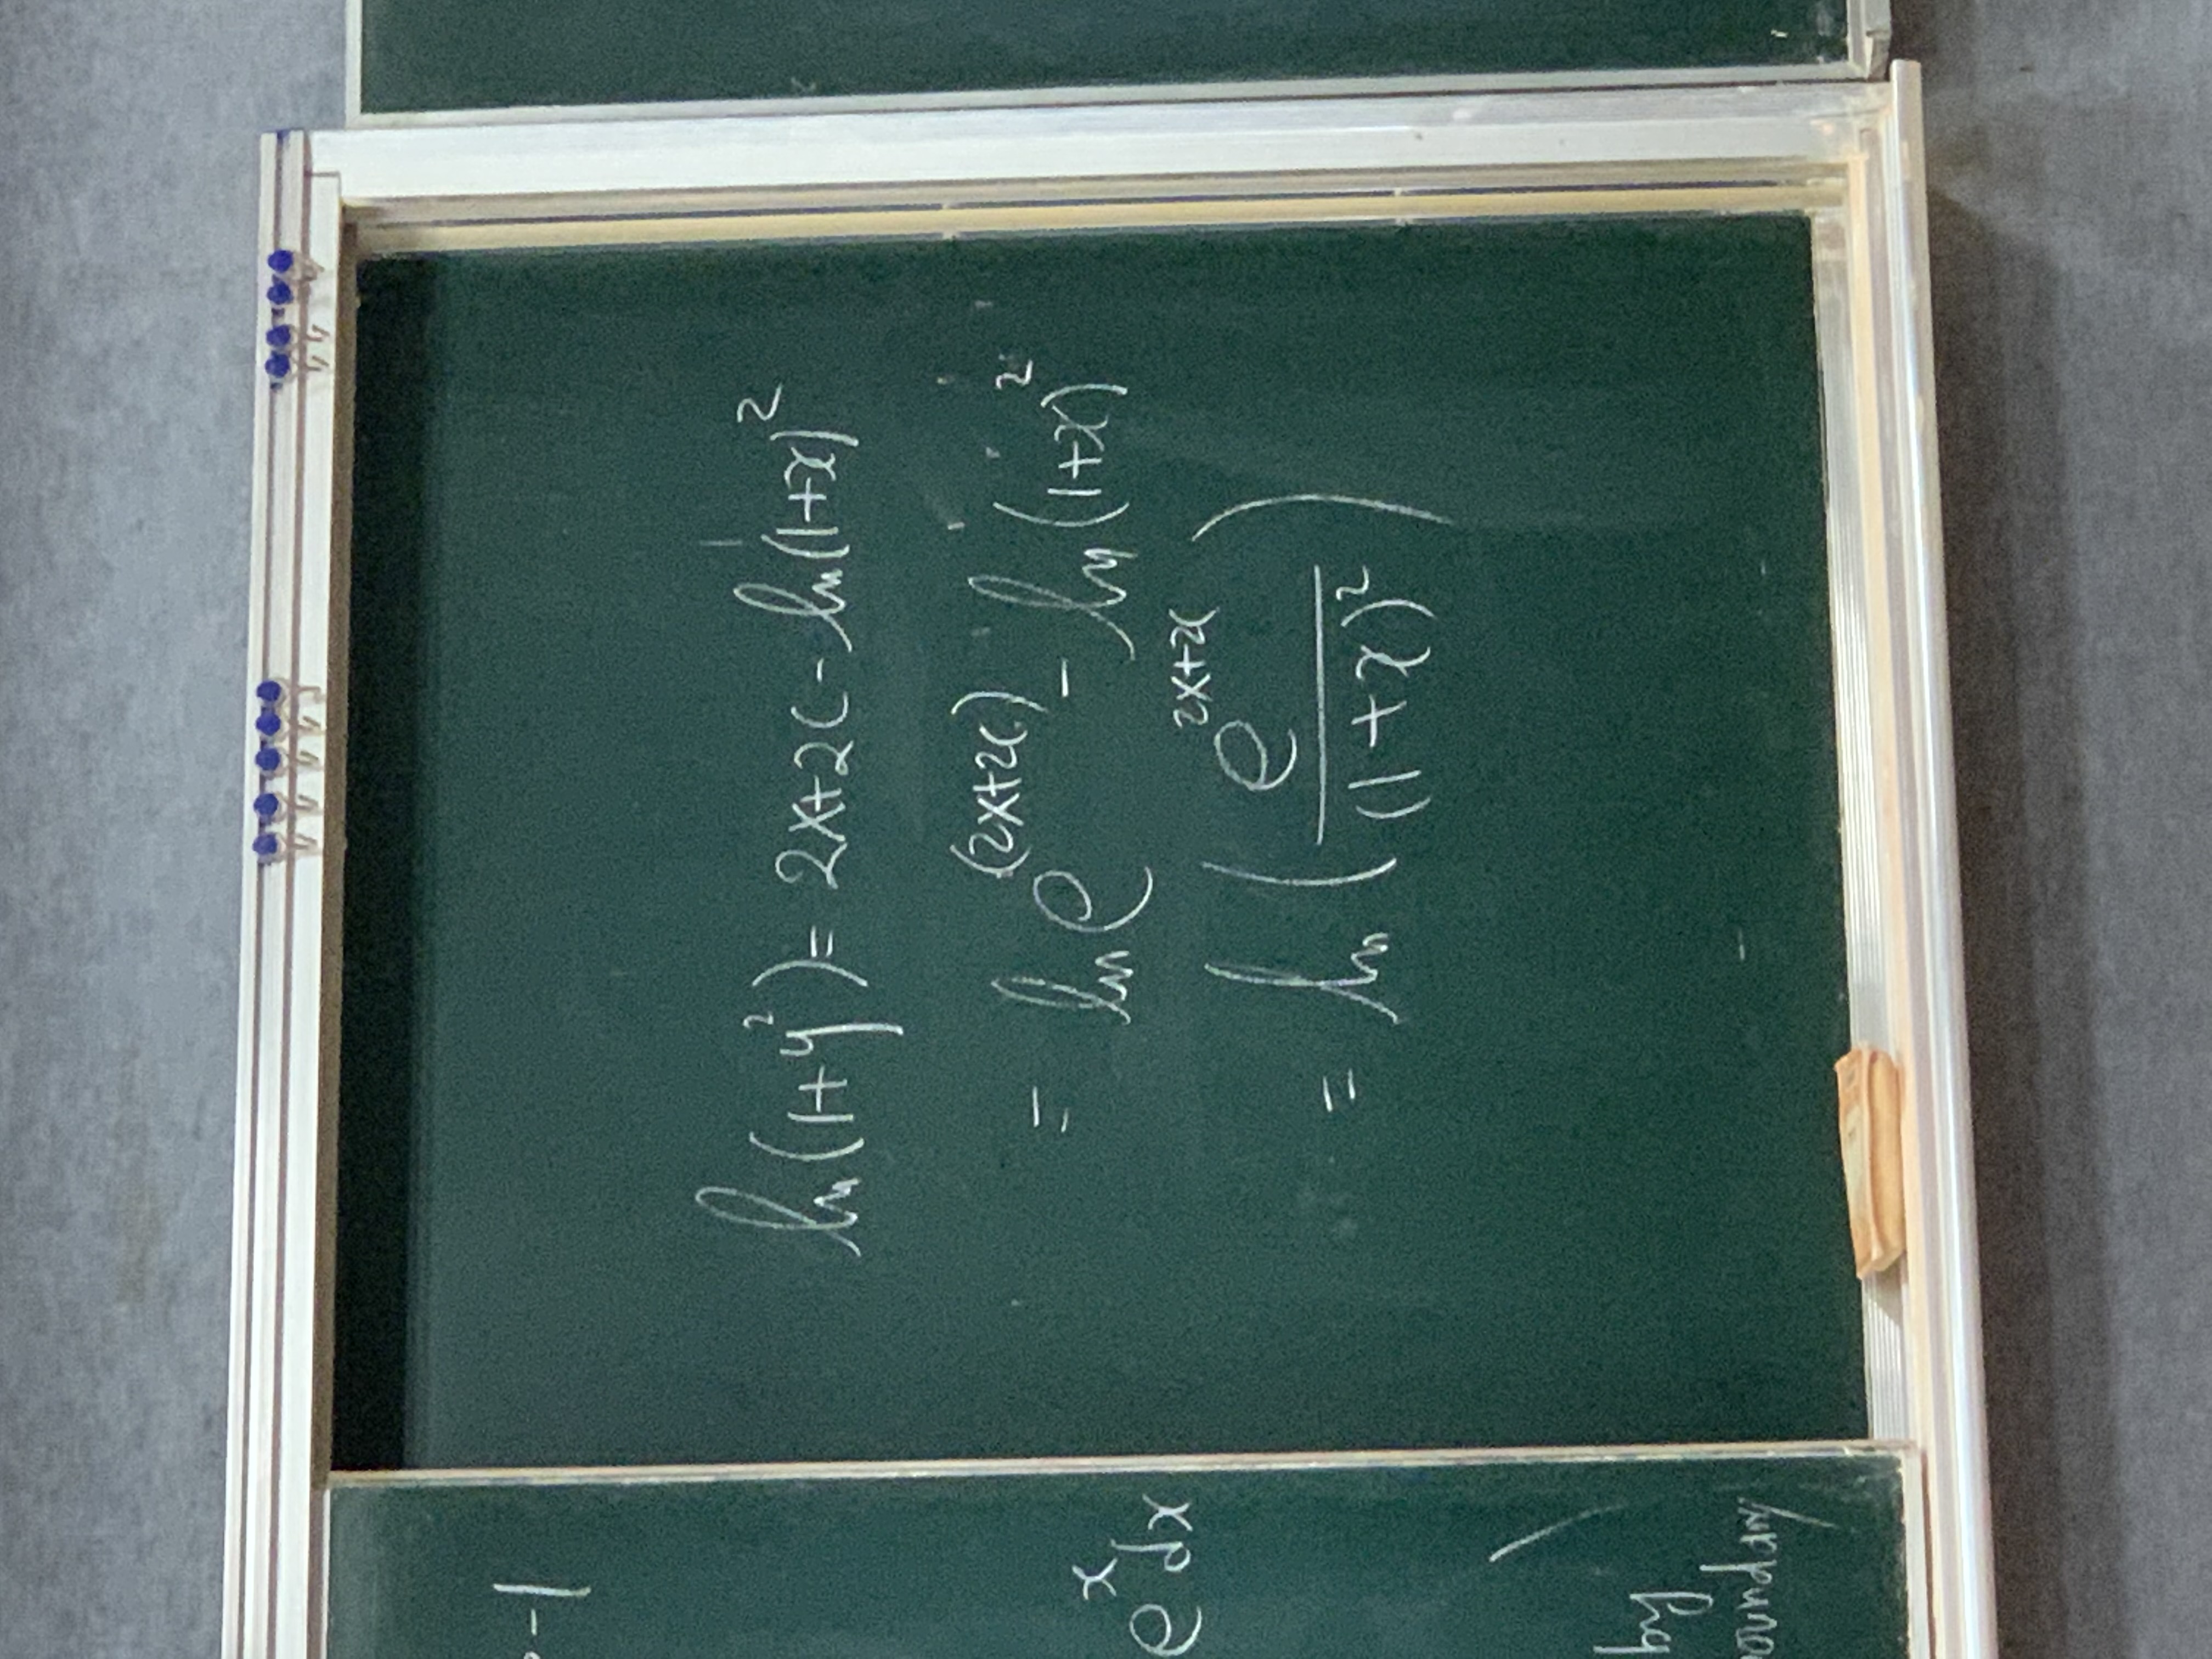 ln(1+y²) = 2x+2c - ln(1+x)²
= ln e^(2x+2c) - ln(1+x)²
= ln(e^2x+2c / (1+x)²)
-1
e^x dx
by